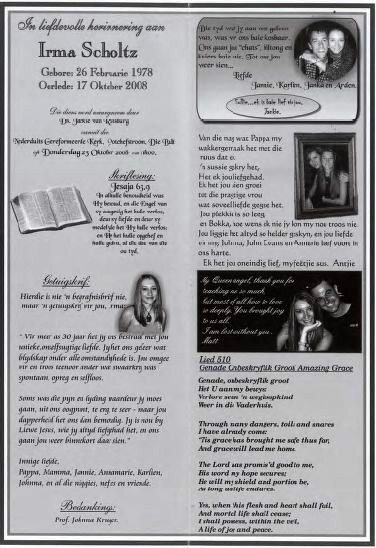 In liefdevolle herinnering aan
Irma Scholtz
Gebore: 26 Februarie 1978
Oorlede: 17 Oktober 2008
Die diens word waargeneem deur
Ds.
vanuit die
Nederduits Gereformeerde Kerk, Potchefstroom, Die Bult
op Donderdag 23 Oktober 2008 om
Skriflesing:
Jesaja 63:9
In al hulle benoudheid was
Hy benoud, en die Engel van
sy aangesig het hulle verlos,
deur sy liefde en deur sy
medelye het Hy hulle verlos;
en Hy het hulle opgehef en
hulle gedra, al die dae van die
ou tyd.
Getuigskrif:
Hierdie is nie 'n begrafnisbrief nie,
maar 'n getuigskrif vir jou, Irma:
" Vir meer as 30 jaar het jy ons bestraal met jou
unieke, onselfsugtige liefde. Jy het ons geleer wat
blydskap onder alle omstandighede is. Jou omgee
vir en troos teenoor ander wie swaarkry was
spontaan, opreg en selfloos.
Soms was die pyn en lyding waardeur jy moes
gaan, uit ons oogpunt, te erg te seer - maar jou
dapperheid het ons dan bemoedig. Jy is nou by
Liewe Jesus, wie jy altyd liefgehad het, en ons
gaan jou weer binnekort daar sien."
Innige liefde,
Pappa, Mamma, Jannie, Annamarie, Karlien,
Johnna, en al die niggies, nefies en vriende.
Bedankings:
Prof. Johnna Kruger.
Die tyd wat jy aan ons geleen
was, was vir ons baie kosbaar.
Ons gaan jou "chats", biltong en
baie mis. Tot ons jou
weer sien...
Liefde
Jannie, Karlien, Janka en Arden.
Van die nag wat Pappa my
wakkergemaak het met die
nuus dat ek
'n sussie gekry het,
Het ek jou liefgehad.
Ek het jou sien groei
tot die pragtige vrou
wat soveel liefde gegee het.
Jou plekkie is so leeg
en Bokka, hoe wens ek nie jy kon my nou troos nie.
Jou liggie het altyd so helder geskyn, en jou liefde
en sorg. Johnna, John Evans en Annarie leef voort in
ons harte.
Ek het jou oneindig lief, my liefste sus. Antjie
My Queen angel, thank you for
teaching us so much,
but most of all how to love
so deeply. You brought joy
to us all.
I am lost without you.
Matt
Lied 510
Genade Onbeskryflik Groot Amazing Grace
Genade, onbeskryflik groot
Het U aan my bewys;
Verlore seun 'n wegloopkind
Weer in die Vaderhuis.
Through many dangers, toils and snares
I have already come;
'Tis grace has brought me safe thus far,
And grace will lead me home.
The Lord has promis'd good to me,
His word my hope secures;
He will my shield and portion be,
As long as life endures.
Yes, when this flesh and heart shall fail,
And mortal life shall cease;
I shall possess, within the veil,
A life of joy and peace.